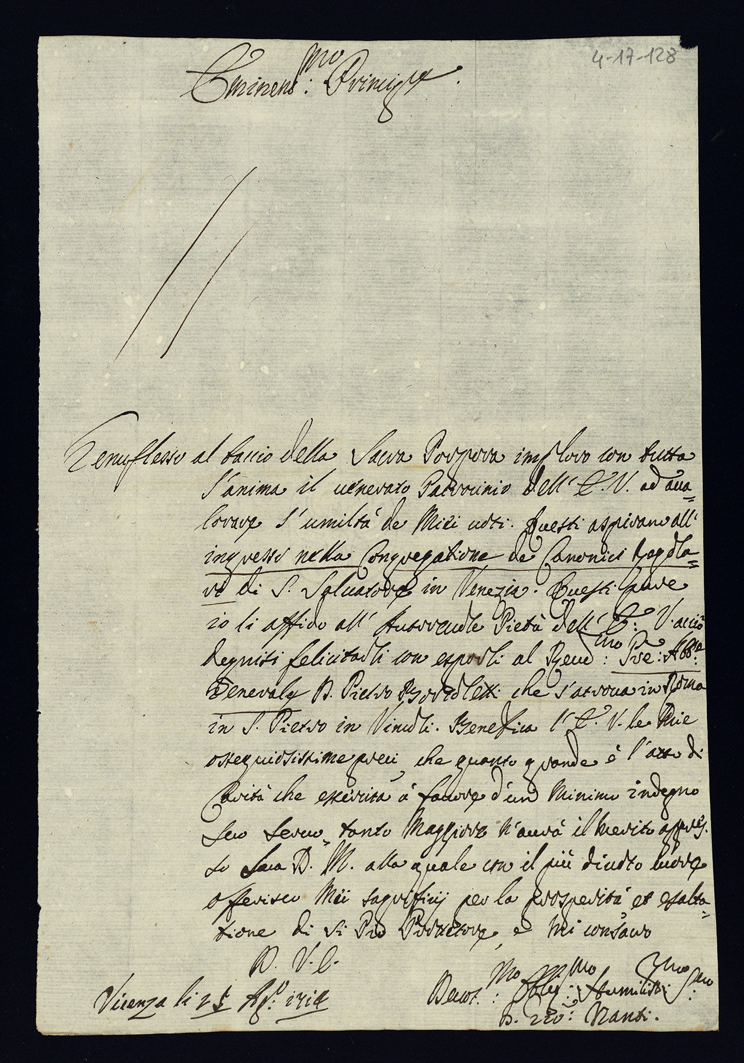 4-17-128
Eminens:mo Principe
Genuflesso al baccio della Sacra Porpora imploro con tutta
l'anima il venerato Patrocinio dell' E. V. ad ava-
lorare l'umiltà de Miei voti. Questi aspirano all'
ingresso nella Congregatione de Canonici Regola-
ri di S. Salvatore in Venezia. Questi pure
io li affido all' Autorevole Pietà dell' E. V. acciò
degnisi felicitarli con esporli al Rend:mo Pre: Abb:e
Generale D. Pietro che s'attrova in Roma
in S. Pietro in Vincoli. Benefica l' E. V. le Mie
ossequiosissime preci, che quanto grande è l'atto di
Carità che esercita à favore d'un Minimo indegno
suo servo, tanto Maggiore n'avrà il merito appres-
so Sua D. M. alla quale con il più divoto cuore
offerisco Miei sagrifici per la prosperità et esalta-
tione di sì Pio Protettore, e mi consacro
D. V. E.
Vicenza li 25 Ag:o
Devot:mo Obblig:mo Humiliss:mo Servo
D. Gio: Nanti.